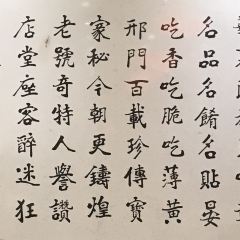 名品名餚名貼晏
吃香吃脆吃薄黃
邢門百載珍傳寶
家秘今朝更鑄煌
老號奇特人譽讚
店堂座客醉迷狂